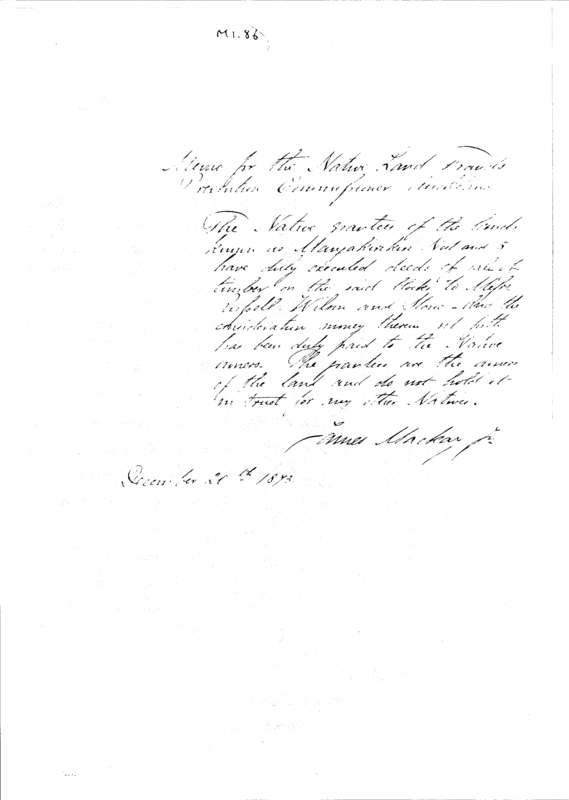 M1.86
Memo for the Native Land Frauds
Prevention Commissioner
The Native grantees of the lands
known as No 1 and 3
have duly executed deeds of sale of
timber on the said blocks to Messrs
Wilson and the
consideration money therein set forth
has been duly paid to the Native
owners. The grantees are the owners
of the land and do not hold it
in trust for any other Natives.
James Mackay Jr
December 20th 1873